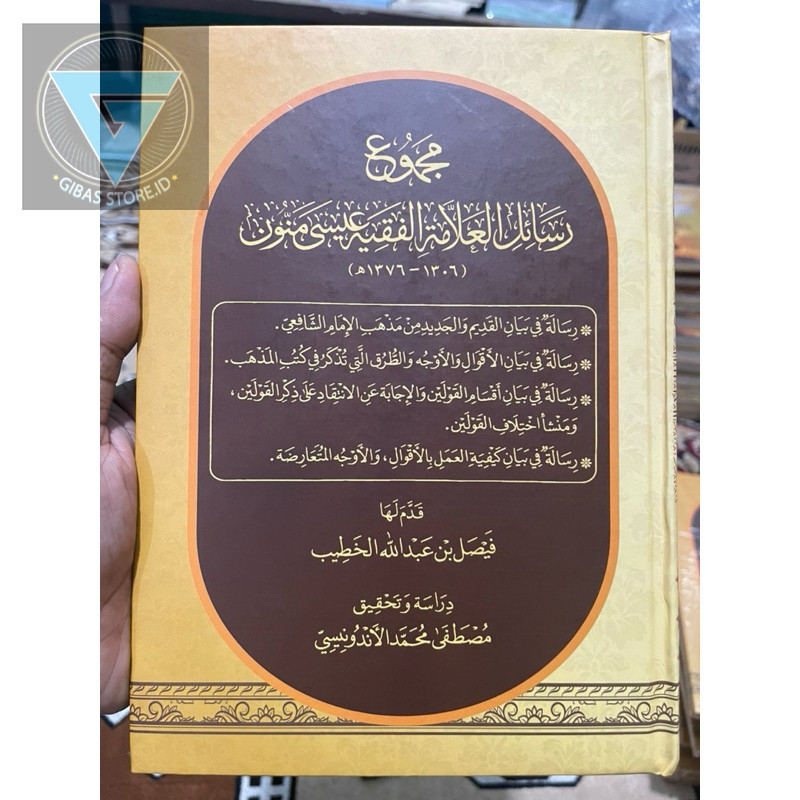 GIBAS STORE.ID
مجموع
رسائل العلامة الفقيه عيسى منون
(١٣٠٦ - ١٣٧٦هـ)
* رسالة في بيان القديم والجديد من مذهب الإمام الشافعي.
* رسالة في بيان الأقوال والأوجه والطرق التي تذكر في كتب المذهب.
* رسالة في بيان أقسام القولين والإجابة عن الانتقاد على ذكر القولين،
ومنشأ اختلاف القولين.
* رسالة في بيان كيفية العمل بالأقوال، والأوجه المتعارضة.
قدم لها
فيصل بن عبد الله الخطيب
دراسة وتحقيق
مصطفى محمد الأندونيسي